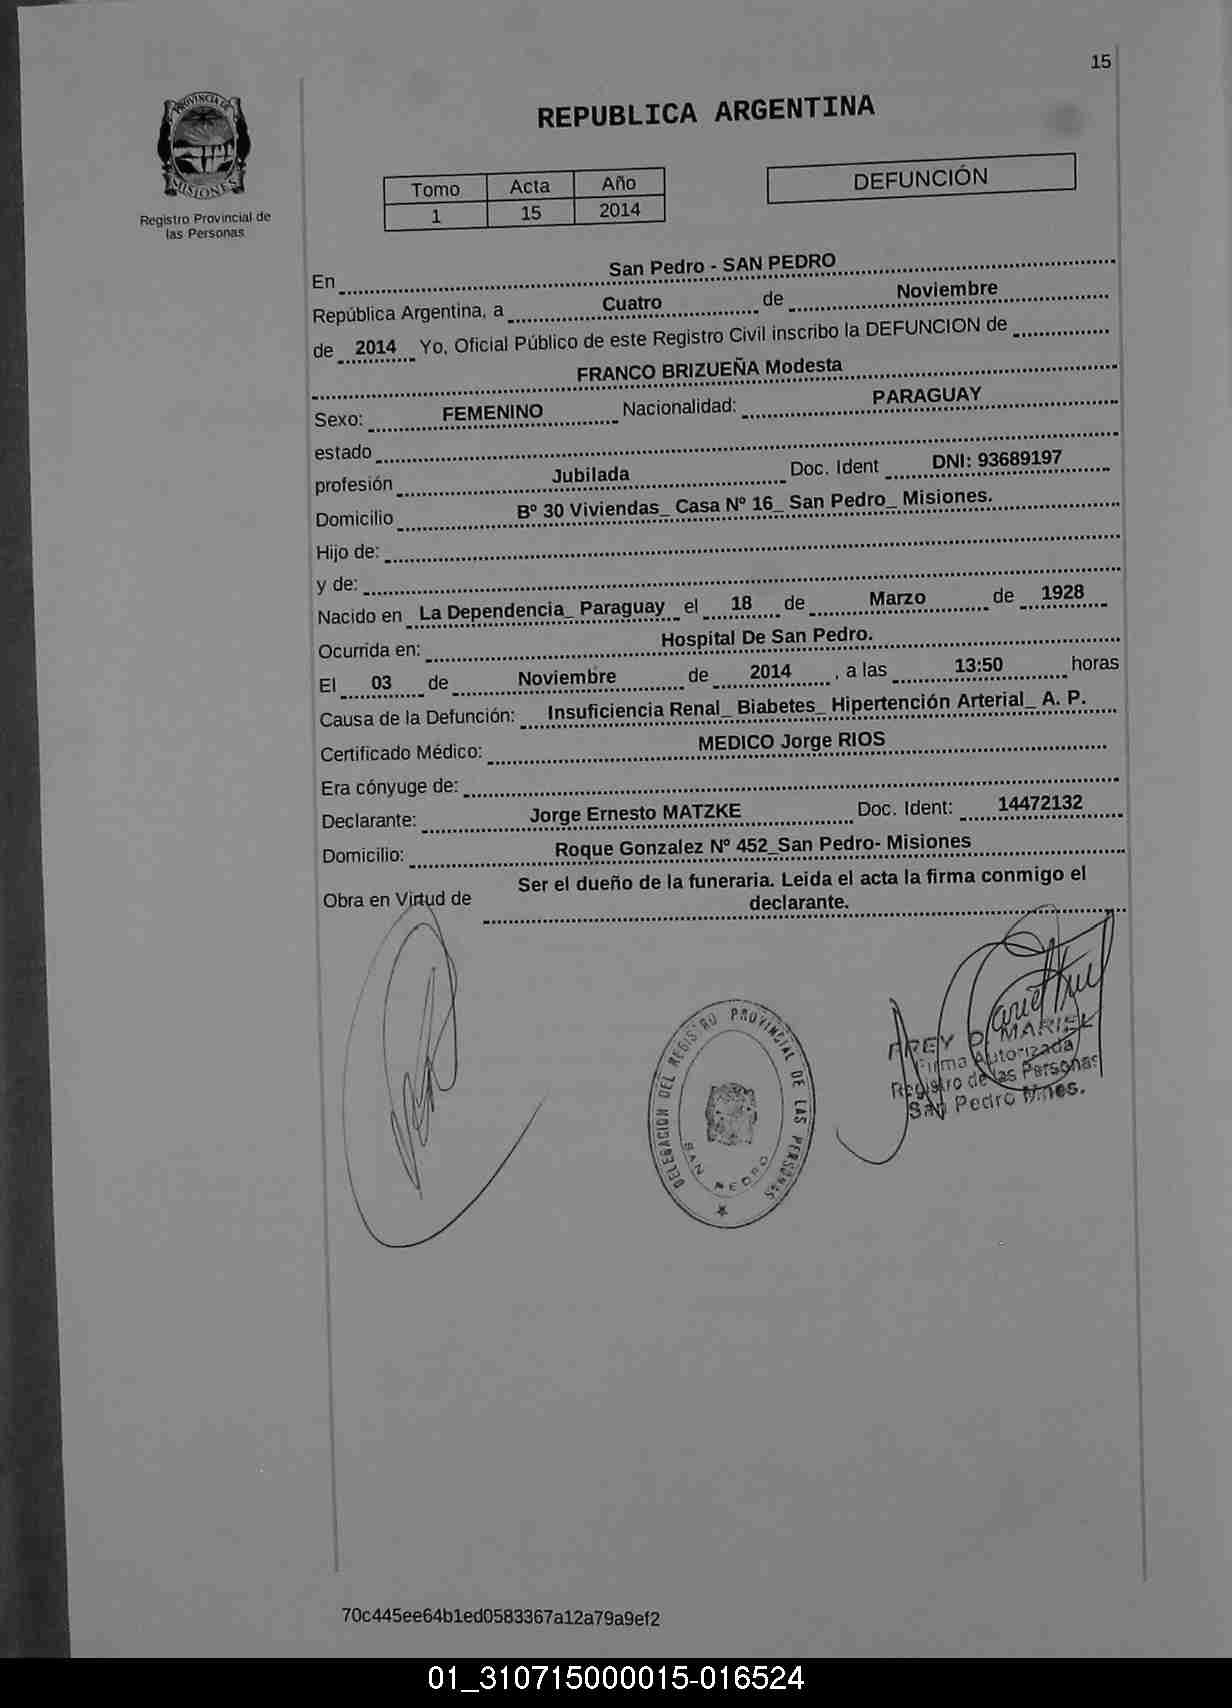 15
PROVINCIA DE
MISIONES
Registro Provincial de
las Personas
REPUBLICA ARGENTINA
Tomo Acta Año
1 15 2014
DEFUNCIÓN
En San Pedro - SAN PEDRO
República Argentina, a Cuatro de Noviembre
de 2014 Yo, Oficial Público de este Registro Civil inscribo la DEFUNCION de
FRANCO BRIZUEÑA Modesta
Sexo: FEMENINO Nacionalidad: PARAGUAY
estado
profesión Jubilada Doc. Ident DNI: 93689197
Domicilio Bº 30 Viviendas_ Casa Nº 16_ San Pedro_ Misiones.
Hijo de:
y de:
Nacido en La Dependencia_ Paraguay el 18 de Marzo de 1928
Ocurrida en: Hospital De San Pedro.
El 03 de Noviembre de 2014 , a las 13:50 horas
Causa de la Defunción: Insuficiencia Renal_ Biabetes_ Hipertención Arterial_ A. P.
Certificado Médico: MEDICO Jorge RIOS
Era cónyuge de:
Declarante: Jorge Ernesto MATZKE Doc. Ident: 14472132
Domicilio: Roque Gonzalez Nº 452_San Pedro- Misiones
Obra en Virtud de Ser el dueño de la funeraria. Leida el acta la firma conmigo el
declarante.
DELEGACION DEL REGISTRO PROVINCIAL DE LAS PERSONAS
SAN PEDRO
FREY D. MARIEL
Firma Autorizada
Registro de las Personas
San Pedro Mnes.
70c445ee64b1ed0583367a12a79a9ef2
01_310715000015-016524